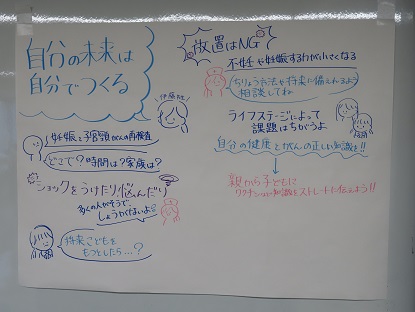 自分の未来は
自分でつくる
伊藤Dr.
妊娠と子宮頸がんの再検査
どこで？時間は？家族は？
ショックをうけたり、悩んだり
多くの人がそうで、
しょうがないよ
将来こどもを
もつとしたら…？
放置はNG
不妊や妊娠する力が小さくなる
ちりょう方法や将来に備えれるよう
相談してね
ライフステージによって
課題はちがうよ
自分の健康とがんの正しい知識を!!
親から子どもに
ワクチン 知識をストレートに伝えよう!!